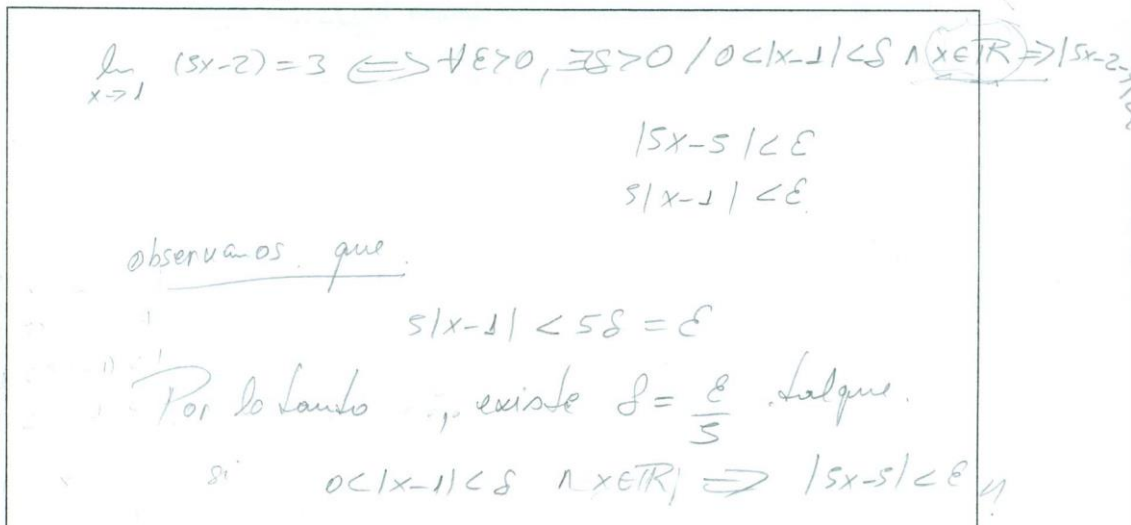 lim (5x-2) = 3 ⟺ ∀ε>0, ∃δ>0 / 0<|x-1|<δ ∧ x∈ℝ ⟹ |5x-2-3|<ε
x→1
|5x-5|<ε
5|x-1|<ε
observamos que
5|x-1| < 5δ = ε
Por lo tanto, existe δ = ε/5 tal que
si 0<|x-1|<δ ∧ x∈ℝ, ⟹ |5x-5|<ε //